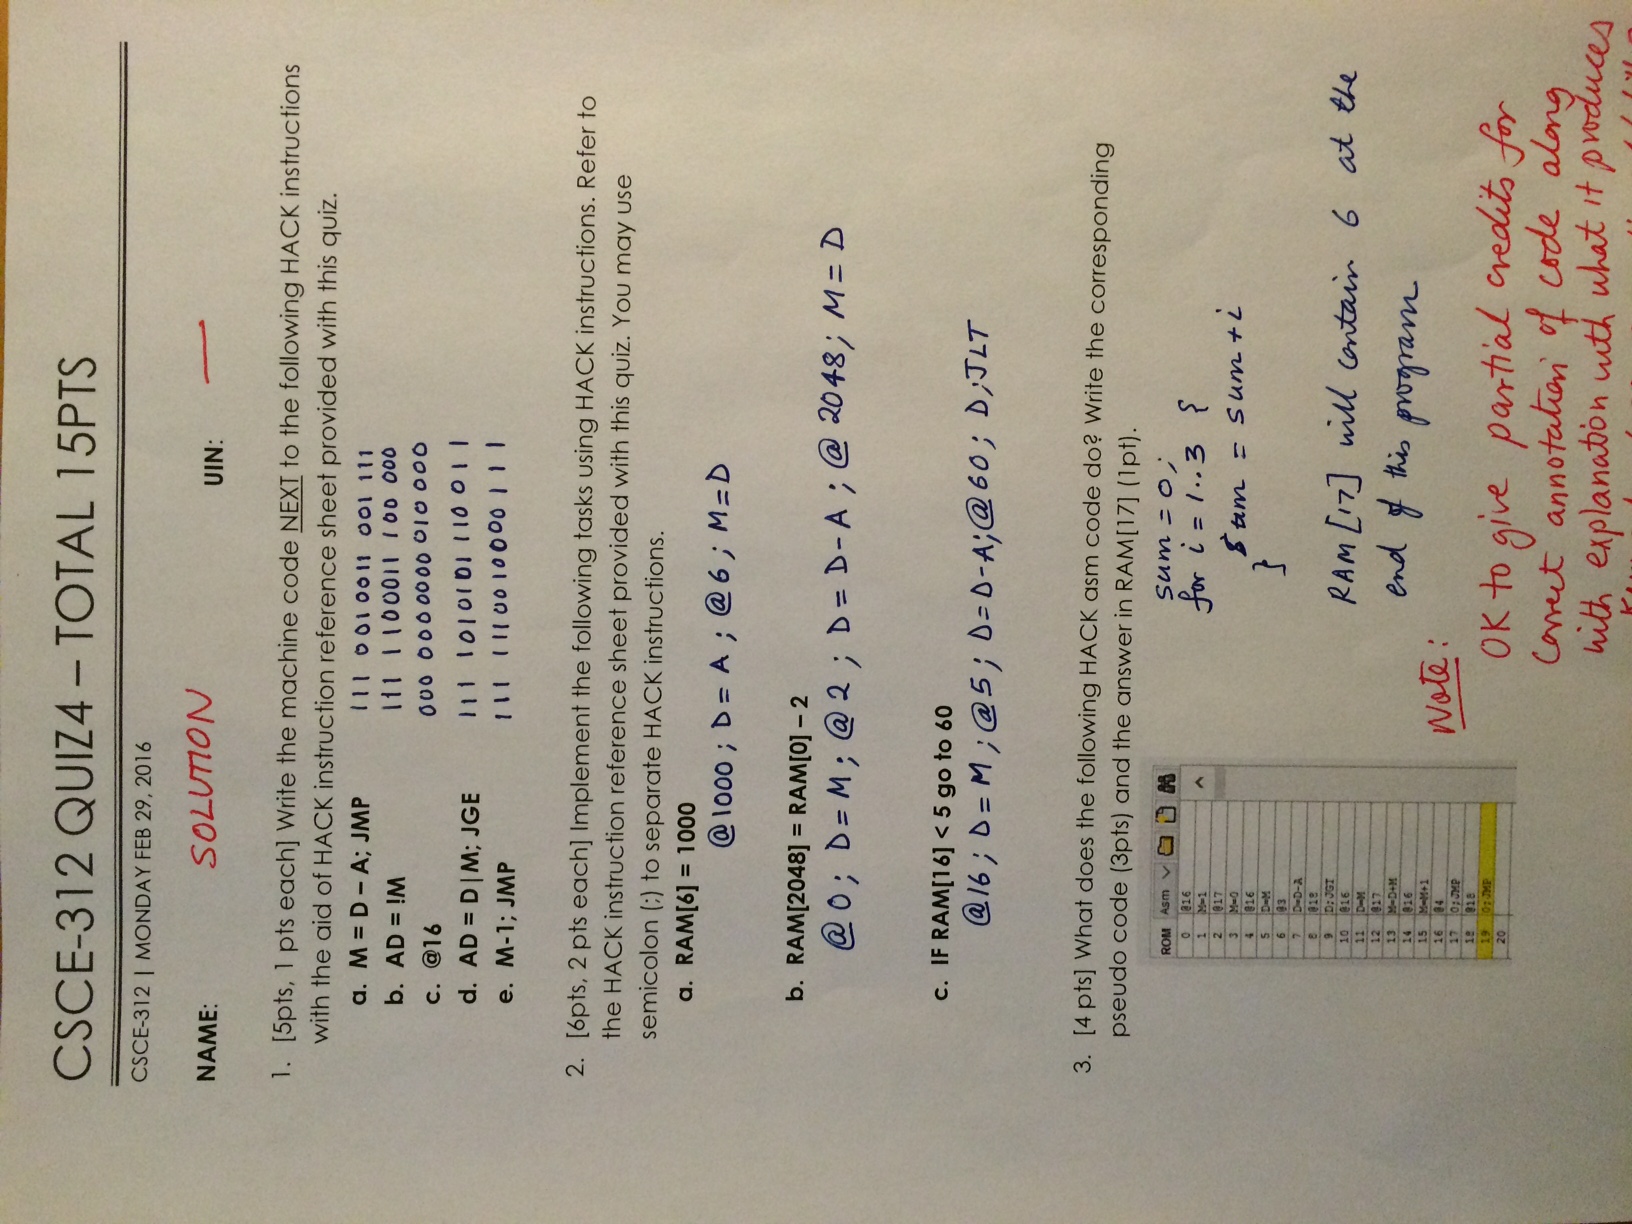 CSCE-312 QUIZ4 – TOTAL 15PTS
CSCE-312 | MONDAY FEB 29, 2016
NAME: SOLUTION UIN: —
1. [5pts, 1 pts each] Write the machine code NEXT to the following HACK instructions
with the aid of HACK instruction reference sheet provided with this quiz.
a. M = D – A; JMP 111 0010011 001 111
b. AD = !M 111 1100011 100 000
c. @16 000 0000000 010 000
d. AD = D|M; JGE 111 1010101 110 011
e. M-1; JMP 111 1110010000111
2. [6pts, 2 pts each] Implement the following tasks using HACK instructions. Refer to
the HACK instruction reference sheet provided with this quiz. You may use
semicolon (;) to separate HACK instructions.
a. RAM[6] = 1000
@1000 ; D = A ; @6 ; M=D
b. RAM[2048] = RAM[0] – 2
@0; D=M; @2 ; D = D-A ; @2048; M = D
c. IF RAM[16] < 5 go to 60
@16 ; D=M ; @5 ; D=D-A;@60; D;JLT
3. [4 pts] What does the following HACK asm code do? Write the corresponding
pseudo code (3pts) and the answer in RAM[17] (1pt).
ROM Asm
0 @16
1 M=1
2 @17
3 M=0
4 @16
5 D=M
6 @3
7 D=D-A
8 @18
9 D;JGT
10 @16
11 D=M
12 @17
13 M=D+M
14 @16
15 M=M+1
16 @4
17 0;JMP
18 @18
19 0;JMP
20
sum = 0;
for i = 1..3 {
sum = sum+i
}
RAM[17] will contain 6 at the
end of this program
Note:
OK to give partial credits for
correct annotation of code along
with explanation with what it produces